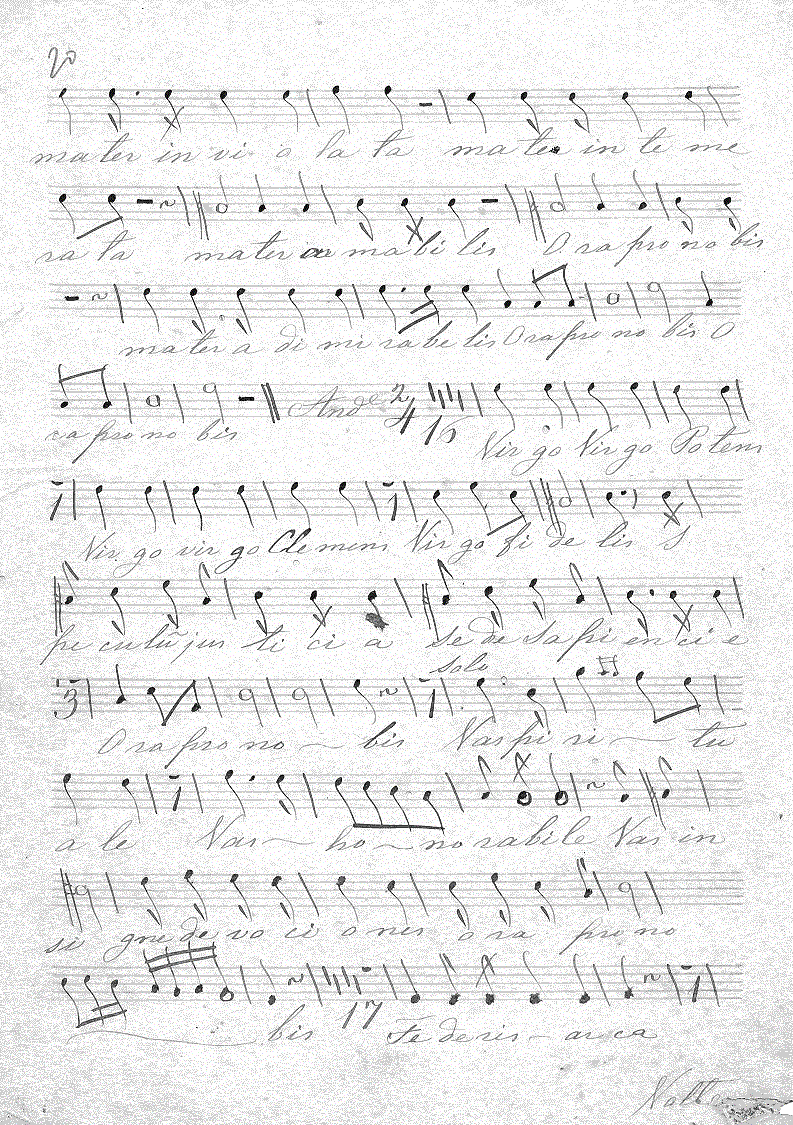 20
mater in vi o la ta mater in te me
ra ta mater a ma bi lis O ra pro no bis
mater a di mi ra be lis Ora pro no bis O
ra pro no bis And.e 2/4 16 Vir go Vir go Potens
1 Vir go vir go Clemens 1 Vir go fi de lis S
pe culũ jus ti ci a se de sa pi en ci e
solo
3 O ra pro no bis 1 Vas pi ri tu
a le 1 Vas ho no rabile Vas in
si gne de vo ci o nis o ra pro no
bis 17 Fe deris arca 1